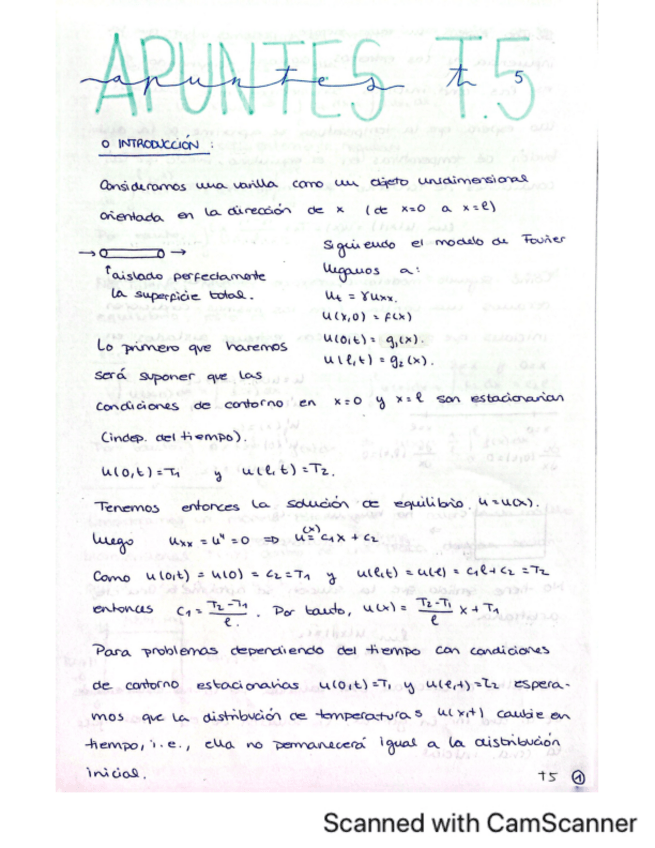 APUNTES T.5
apuntes t 5
0 INTRODUCCIÓN :
Consideramos una varilla como un objeto unidimensional
orientada en la dirección de x (de x=0 a x=l)
aislado perfectamente
la superficie total.
Siguiendo el modelo de Fourier
llegamos a:
ut = γuxx.
u(x,0) = f(x)
u(0,t) = g1(x).
u(l,t) = g2(x).
Lo primero que haremos
será suponer que las
condiciones de contorno en x=0 y x=l son estacionarias
(indep. del tiempo).
u(0,t)=T1 y u(l,t)=T2.
Tenemos entonces la solución de equilibrio u=u(x).
luego uxx = u'' = 0 ⇒ u(x) = c1x + c2
Como u(0,t) = u(0) = c2 = T1 y u(l,t) = u(l) = c1l + c2 = T2
entonces c1 = (T2-T1)/l. Por tanto, u(x) = (T2-T1)/l x + T1
Para problemas dependiendo del tiempo con condiciones
de contorno estacionarias u(0,t)=T1 y u(l,t)=T2 espera-
mos que la distribución de temperaturas u(x,t) cambie en
tiempo, i.e., ella no permanecerá igual a la distribución
inicial.
T5 1
Scanned with CamScanner